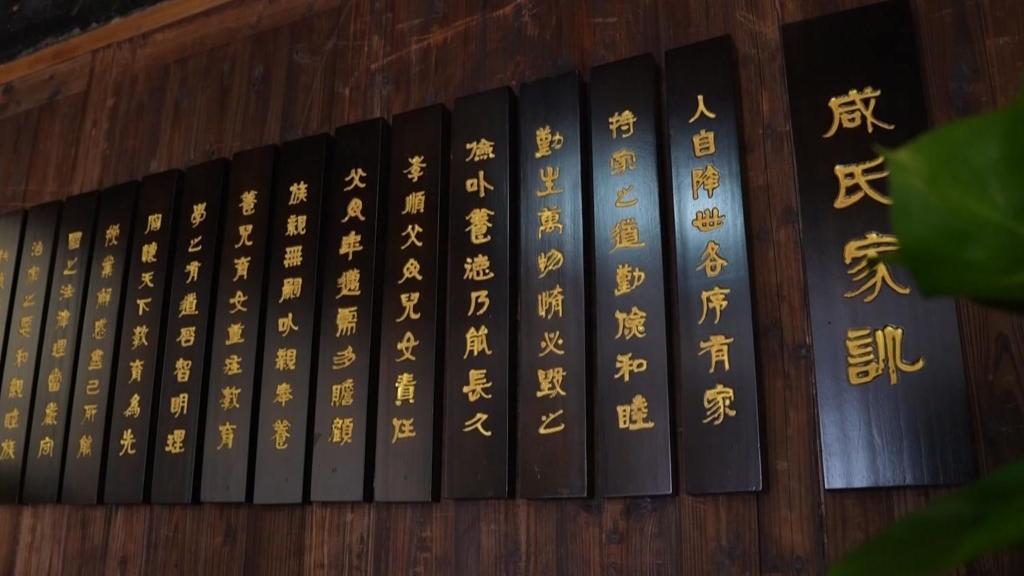 咸氏家訓
人自降世各序有家
持家之道勤儉和睦
勤生萬物惰必毀之
儉以養德乃能長久
孝順父母兒女責任
父母年邁需多贍顧
族親無嗣以親奉養
養兒育女重注教育
學之有道啓智明理
胸懷天下教育為先
授業解惑盡己所能
國之法律理當嚴守
治家之和親睦族